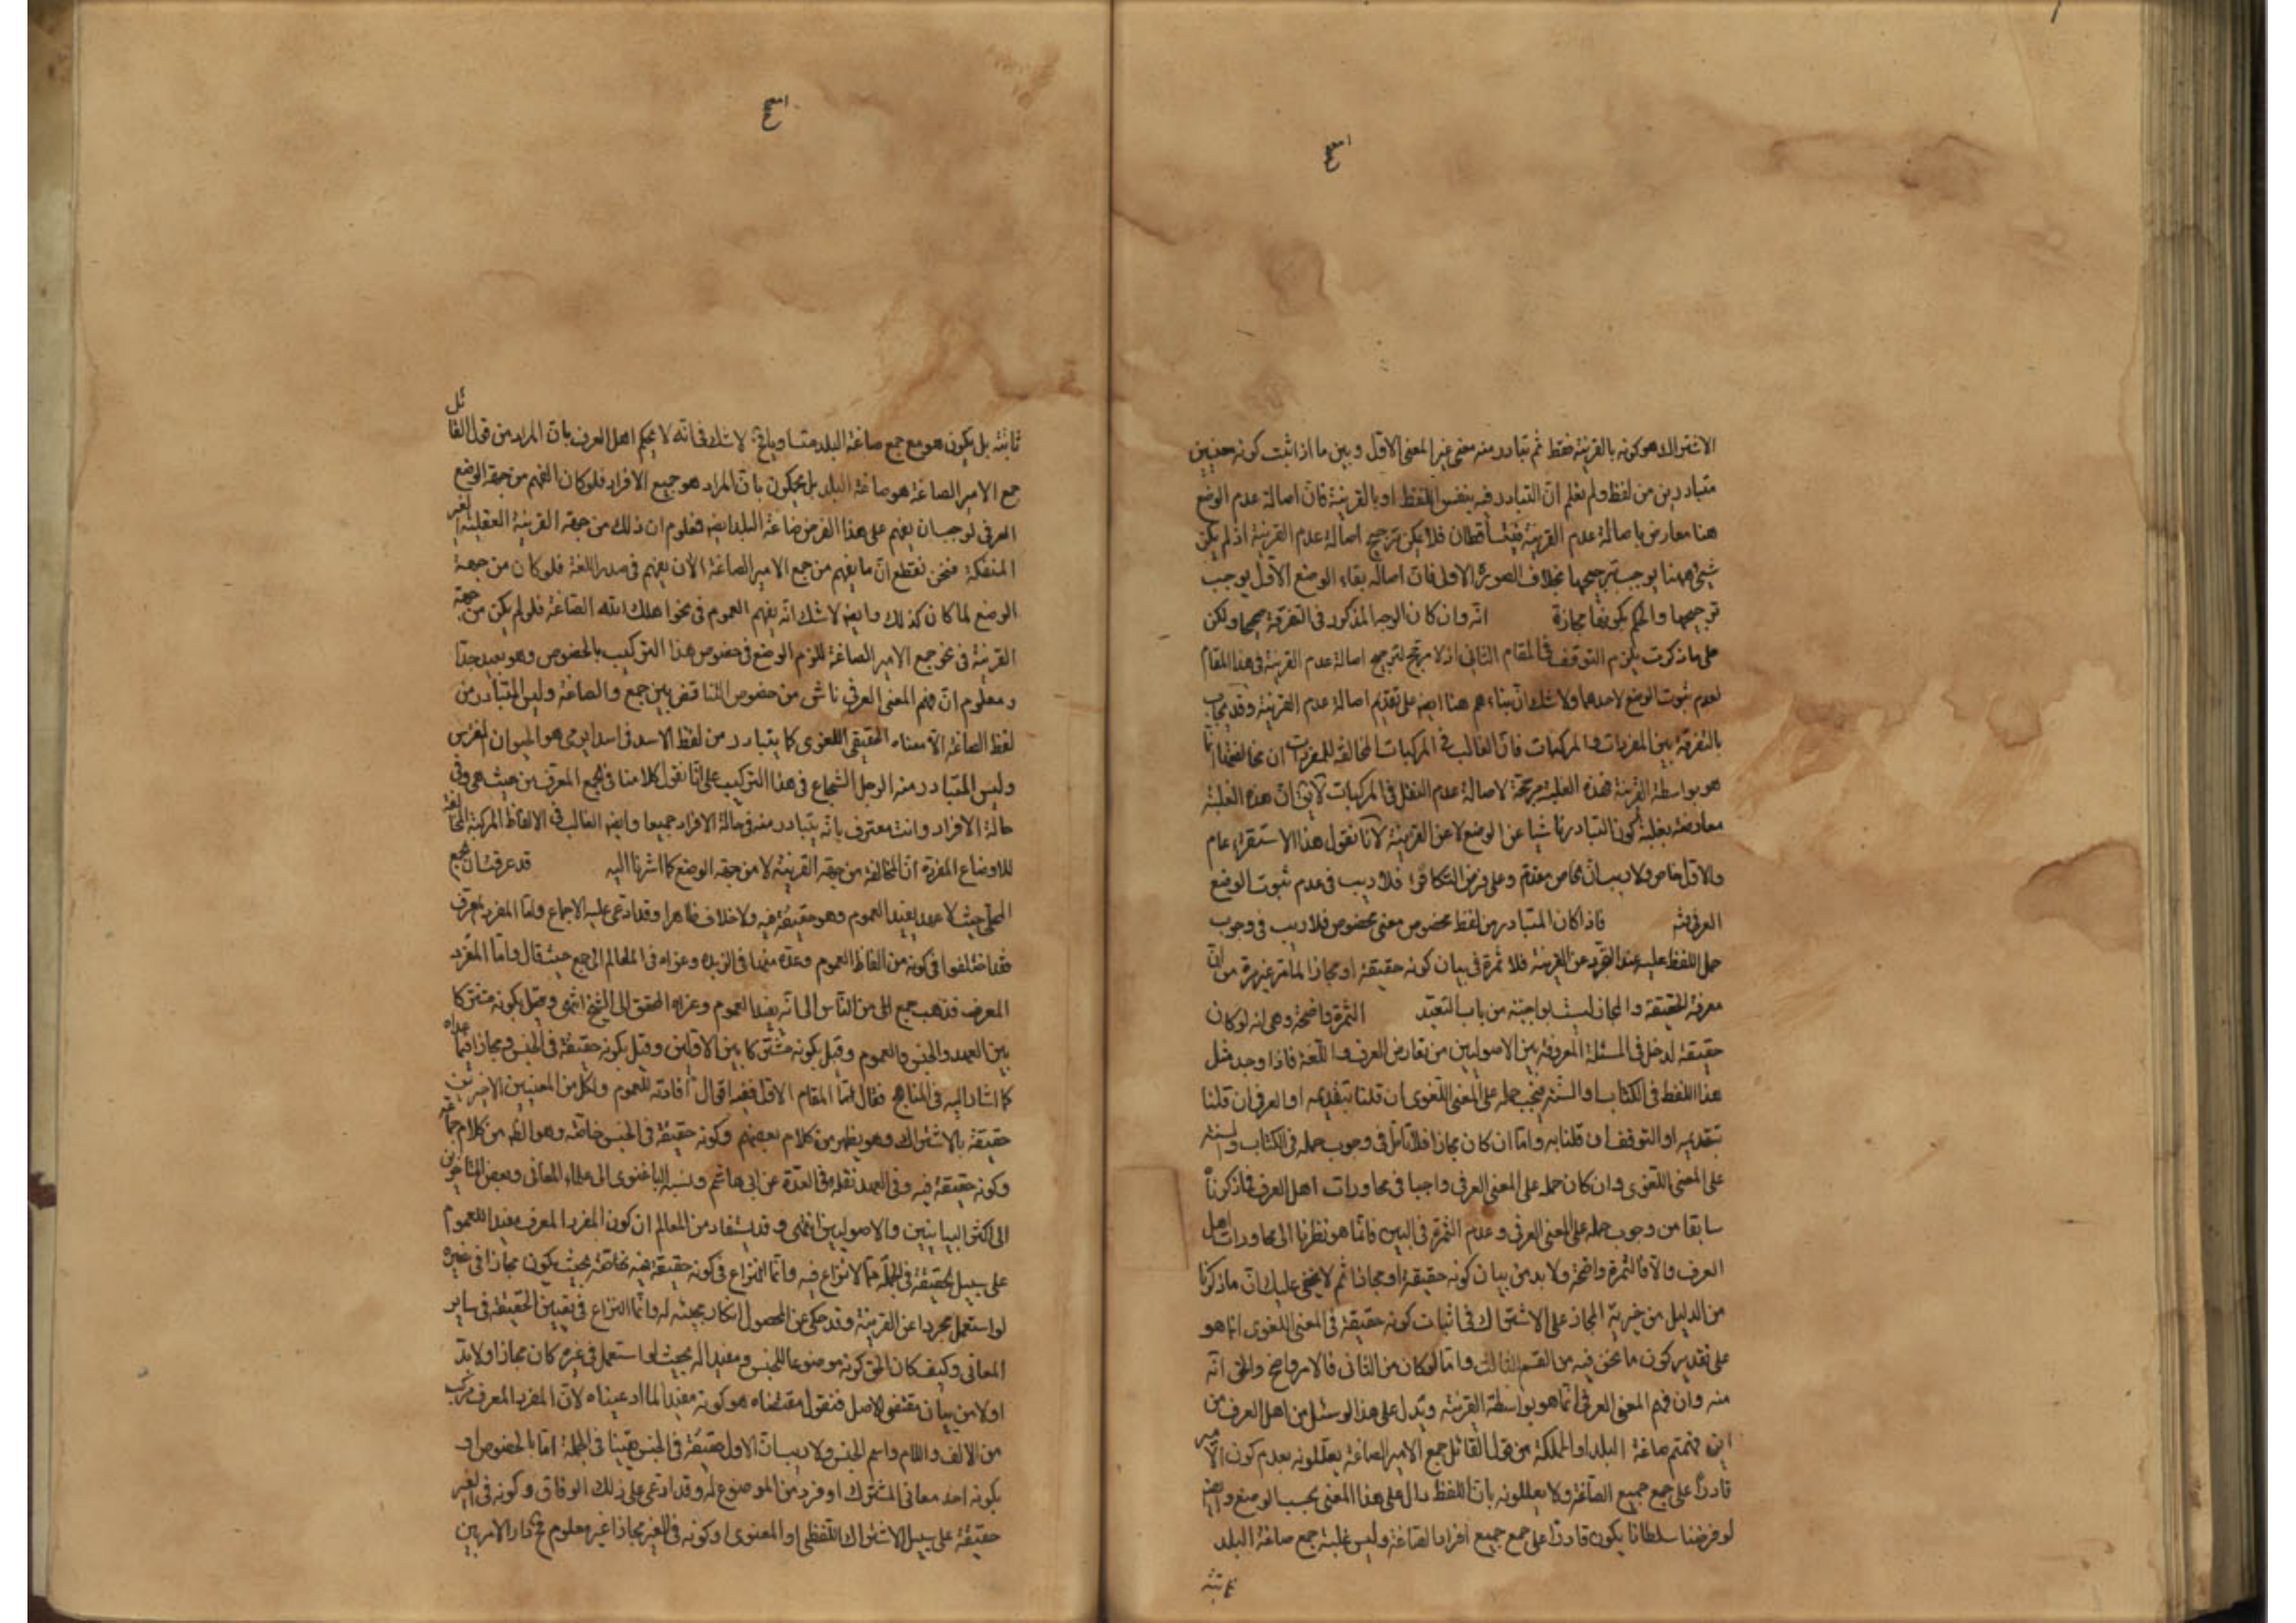 الاشتراك هو كونه بالقرينة فقط ثم تبادر منه معنى غير المعنى الاول وبين ما اذا ثبت كونه معنيين
متبادرين من لفظ ولم نعلم ان التبادر فيه بنفس اللفظ او بالقرينة فان اصالة عدم الوضع
هنا معارض باصالة عدم القرينة فيتساقطان فلا يمكن ترجيح اصالة عدم القرينة اذ لم يكن
شيئ ههنا يوجب ترجيحها بخلاف الصورة الاولى فان اصالة بقاء الوضع الاول يوجب
ترجيحها والحكم بكونها مجازة انه وان كان الوجه المذكور في التفرقة صحيحا ولكن
على ما ذكرت يلزم التوقف في المقام الثاني اذ لا مرجح لترجيح اصالة عدم القرينة في هذا المقام
لعدم ثبوت الوضع لاحدهما ولا شك ان بناءهم هنا ايضا على تقديم اصالة عدم القرينة وقد يجاب
بالتفرقة بين المفردات والمركبات فان الغالب في المركبات المخالفة للمفردات ان مخالفتها انما
هو بواسطة القرينة فهذه الغلبة مرجحة لاصالة عدم النقل في المركبات لا يق ان هذه الغلبة
معارضة بغلبة كون التبادر ناشيا عن الوضع لا عن القرينة لانا نقول هذا الاستقراء عام
والاول خاص ولا ريب ان الخاص مقدم وعلى فرض التكافؤ فلا ريب في عدم ثبوت الوضع
العرفي فاذا كان المتبادر من لفظ مخصوص معنى مخصوص فلا ريب في وجوب
حمل اللفظ عليه عند التجرد عن القرينة فلا ثمرة في بيان كونه حقيقة او مجازا لما مر غير مرة من ان
معرفة الحقيقة والمجاز ليست بواجبة من باب التعبد الثمرة واضحة وهي انه لو كان
حقيقة لدخل في المسئلة المعروفة بين الاصوليين من تعارض العرف واللغة فاذا وجد مثل
هذا اللفظ في الكتاب والسنة فيجب حمله على المعنى اللغوي ان قلنا بتقديمه او العرفي ان قلنا
بتقديمه او التوقف ان قلنا به واما ان كان مجازا فلا تامل في وجوب حمله في الكتاب والسنة
على المعنى اللغوي وان كان حمله على المعنى العرفي واجبا في محاورات اهل العرف فما ذكرنا
سابقا من وجوب حمله على المعنى العرفي وعدم الثمرة في البين فانما هو نظرنا الى محاورات اهل
العرف والا فالثمرة واضحة ولا بد من بيان كونه حقيقة او مجازا ثم لا يخفى عليك ان ما ذكرنا
من الدليل من خيرية المجاز على الاشتراك في اثبات كونه حقيقة في المعنى اللغوي انما هو
على تقدير كون ما نحن فيه من القسم الثالث واما لو كان من الثاني فالامر واضح والحق انه
منه وان فهم المعنى العرفي انما هو بواسطة القرينة ويدل على هذا لو سئل من اهل العرف من
اين فهمتم صاغة البلد او المملكة من قول القائل جمع الامير الصاغة يعللونه بعدم كون الامير
قادرا على جمع جميع الصاغة ولا يعللونه بان اللفظ دال على هذا المعنى بحسب الوضع وايضا
لو فرضنا سلطانا يكون قادرا على جمع جميع افراد الصاغة وليس غلبة جمع صاغة البلد
ثابتة بل يكون هو مع جمع صاغة البلد متساويا لا شك في انه لا يحكم اهل العرف بان المراد من قول القائل
جمع الامير الصاغة هو صاغة البلد بل يحكمون بان المراد هو جميع الافراد فلو كان الفهم من جهة الوضع
العرفي لوجب ان يفهم على هذا الفرض صاغة البلد ايضا فعلم ان ذلك من جهة القرينة العقلية الغير
المنفكة فنحن نقطع ان ما يفهم من جمع الامير الصاغة الان يفهم في صدر اللغة فلو كان من جهة
الوضع لما كان كذلك وايضا لا شك انه يفهم العموم في نحو اهلك الله الصاغة فلو لم يكن من جهة
القرينة في نحو جمع الامير الصاغة للزم الوضع في خصوص هذا التركيب بالخصوص وهو بعيد جدا
ومعلوم ان فهم المعنى العرفي ناشي من خصوص التناقض بين جمع والصاغة وليس المتبادر من
لفظ الصاغة الا معناه الحقيقي اللغوي كما يتبادر من لفظ الاسد في اسد يرمي هو الحيوان المفترس
وليس المتبادر منه الرجل الشجاع في هذا التركيب على انا نقول كلامنا في الجمع المعرف من حيث هو وفي
حالة الافراد وانت معترف بانه يتبادر منه في حالة الافراد جميعا وايضا الغالب في الالفاظ المركبة المخالفة
للاوضاع المفردة ان المخالفة من جهة القرينة لا من جهة الوضع كما اشرنا اليه قد عرفت ان الجمع
المحلى حيث لا عهد يفيد العموم وهو حقيقة فيه ولا خلاف ظاهرا وقد ادعي عليه الاجماع واما المفرد المعرف
فقد اختلفوا في كونه من الفاظ العموم وعده منها في الزبدة وعزاه في المعالم الى جمع حيث قال واما المفرد
المعرف فذهب جمع من الناس الى انه يفيد العموم وعزاه المحقق الى الشيخ انتهى وقيل بكونه مشتركا
بين العهد والجنس والعموم وقيل بكونه مشتركا بين الاولين وقيل بكونه حقيقة في الجنس ومجازا فيما عداه
كما اشار اليه في المناهج فقال اما المقام الاول ففيه اقوال افادته للعموم ولكل من المعنيين الاخيرين
حقيقة بالاشتراك وهو يظهر من كلام بعضهم وكونه حقيقة في الجنس خاصة وهو الظ من كلام جماعة
وكونه حقيقة فيه وفي العهد نقله في العدة عن ابي هاشم ونسبه الباغنوي الى علماء المعاني وبعض المتاخرين
الى اكثر البيانيين والاصوليين انتهى وقد يستفاد من المعالم ان كون المفرد المعرف مفيدا للعموم
على سبيل الحقيقة في الجملة مما لا نزاع فيه وانما النزاع في كونه حقيقة فيه خاصة بحيث يكون مجازا في غيره
لو استعمل مجردا عن القرينة وقد حكي عن المحصول انكار مجيئه له وانما النزاع في تعيين الحقيقة في ساير
المعاني وكيف كان الحق كونه موضوعا للجنس ومفيدا له بحيث لو استعمل في غيره كان مجازا ولا بد
اولا من بيان مقتضى الاصل فنقول مقتضاه هو كونه مفيدا لما ادعيناه لان المفرد المعرف مركب
من الالف واللام واسم الجنس ولا ريب ان الاول حقيقة في الجنس يقينا في الجملة اما بالخصوص او
بكونه احد معاني المشترك او فرد من الموضوع له وقد ادعي على ذلك الوفاق وكونه في الغير
حقيقة على سبيل الاشتراك اللفظي او المعنوي او كونه في الغير مجازا غير معلوم فح دار الامر بين